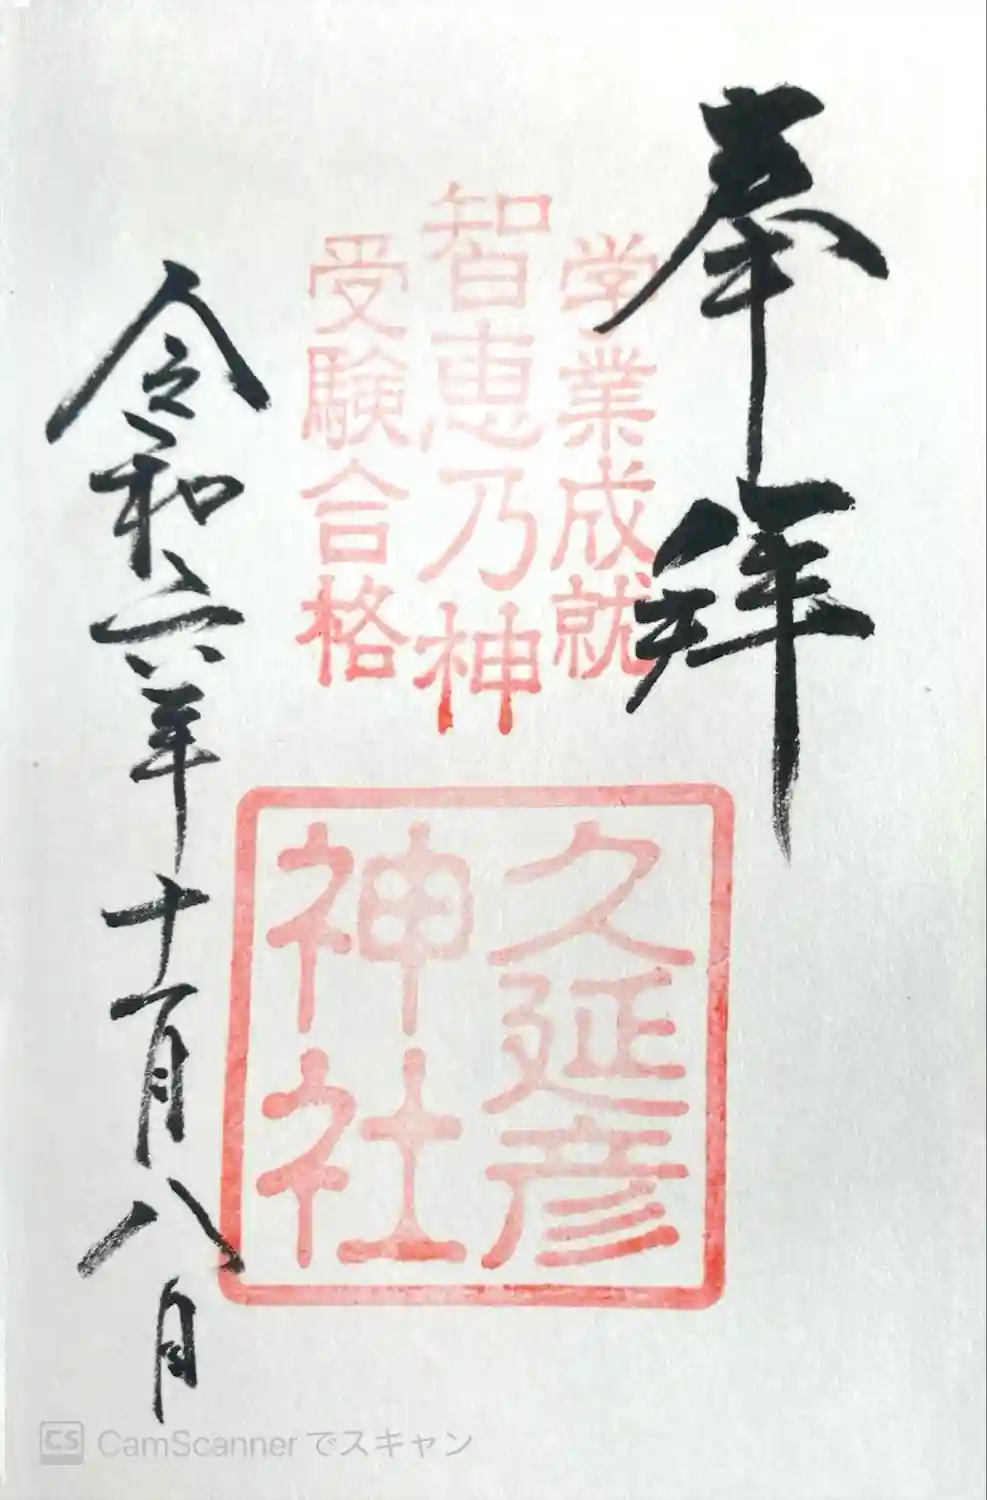 奉拝
学業成就
智恵乃神
受験合格
久延彦
神社
令和六年十一月八日
CS CamScanner でスキャン